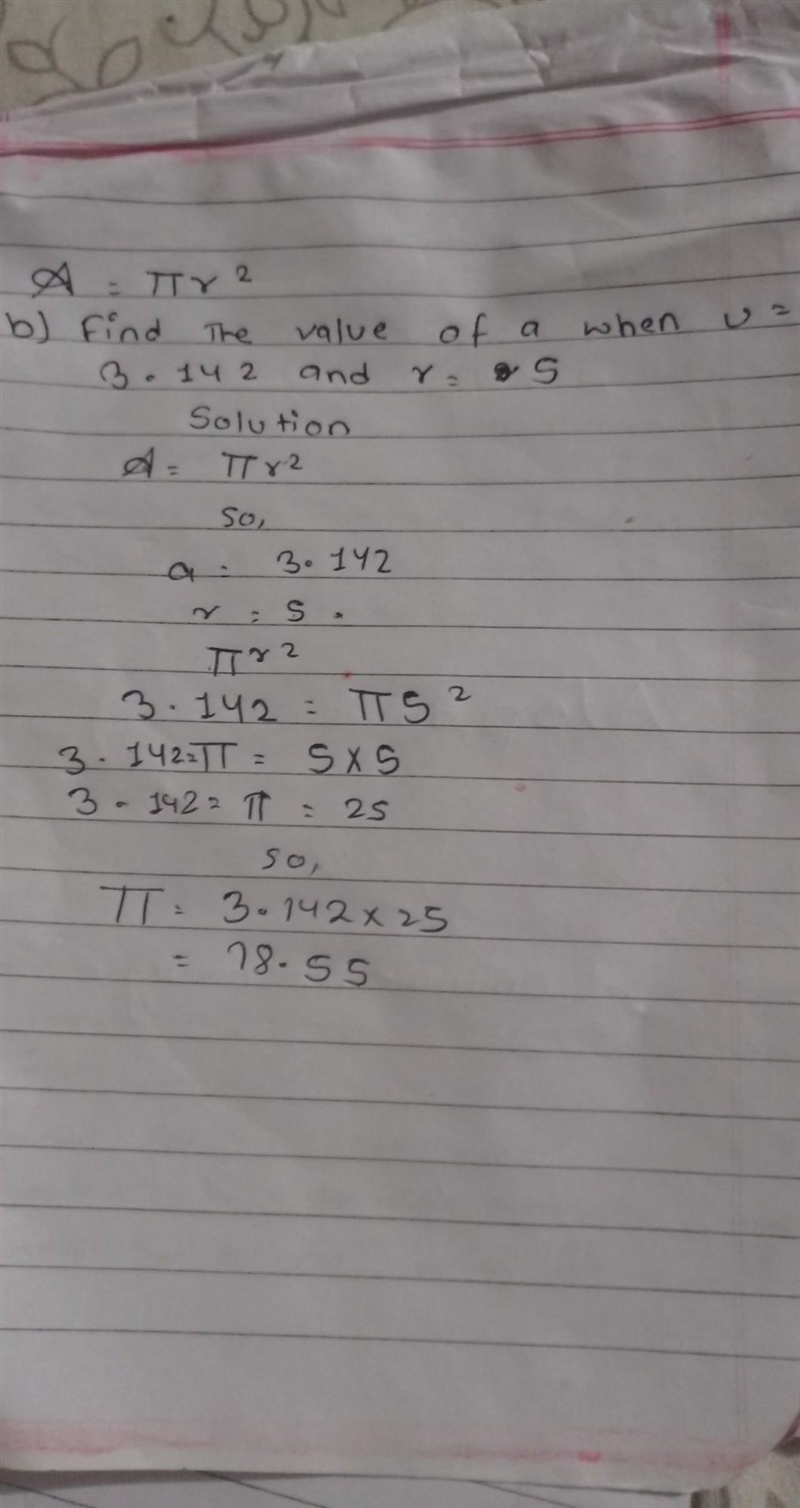 A = πr²
b) Find The value of a when υ =
3.142 and r = 5
Solution
A = πr²
so,
a = 3.142
r = 5.
πr²
3.142 = π5²
3.142=π = 5×5
3.142= π = 25
so,
π = 3.142×25
= 78.55